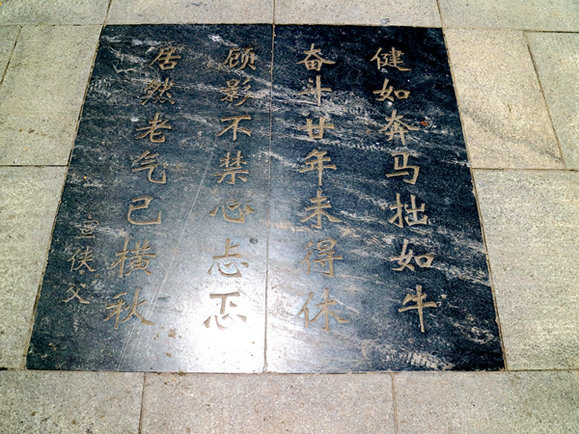 健如奔马拙如牛
奋斗廿年未得休
顾影不禁心忐忑
居然老气已横秋
宣侠父